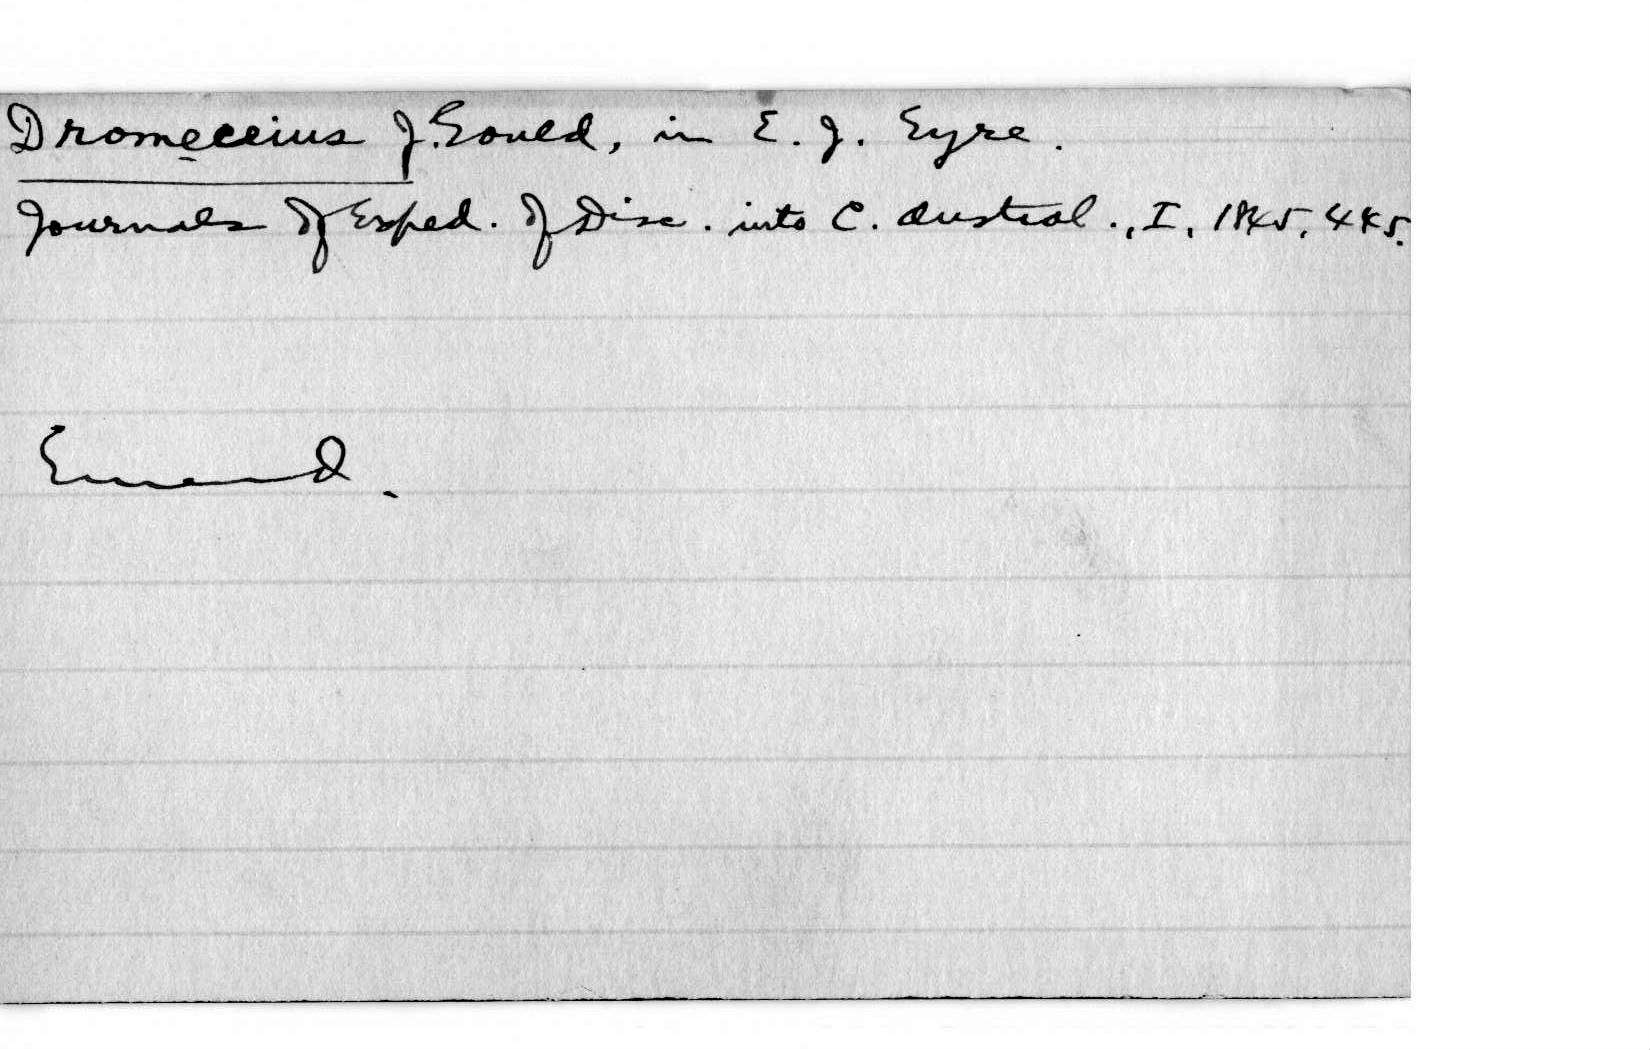 Dromeceius J. Gould, in E. J. Eyre.
Journals of Exped. of Disc. into C. Austral., I, 1845, 445.
Emend.